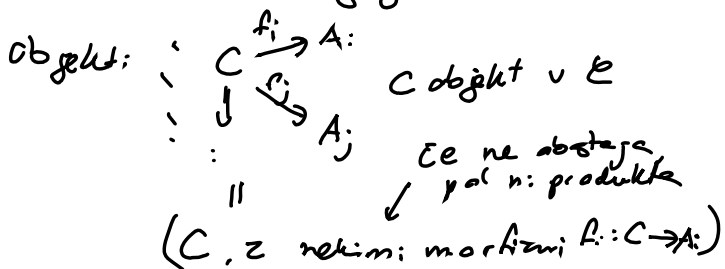 objekti: C f_i → A_i
f_j A_j C objekt v 𝒞
če ne obstaja,
pač ni produkta
(C, z nekimi morfizmi f_i : C → A_i)